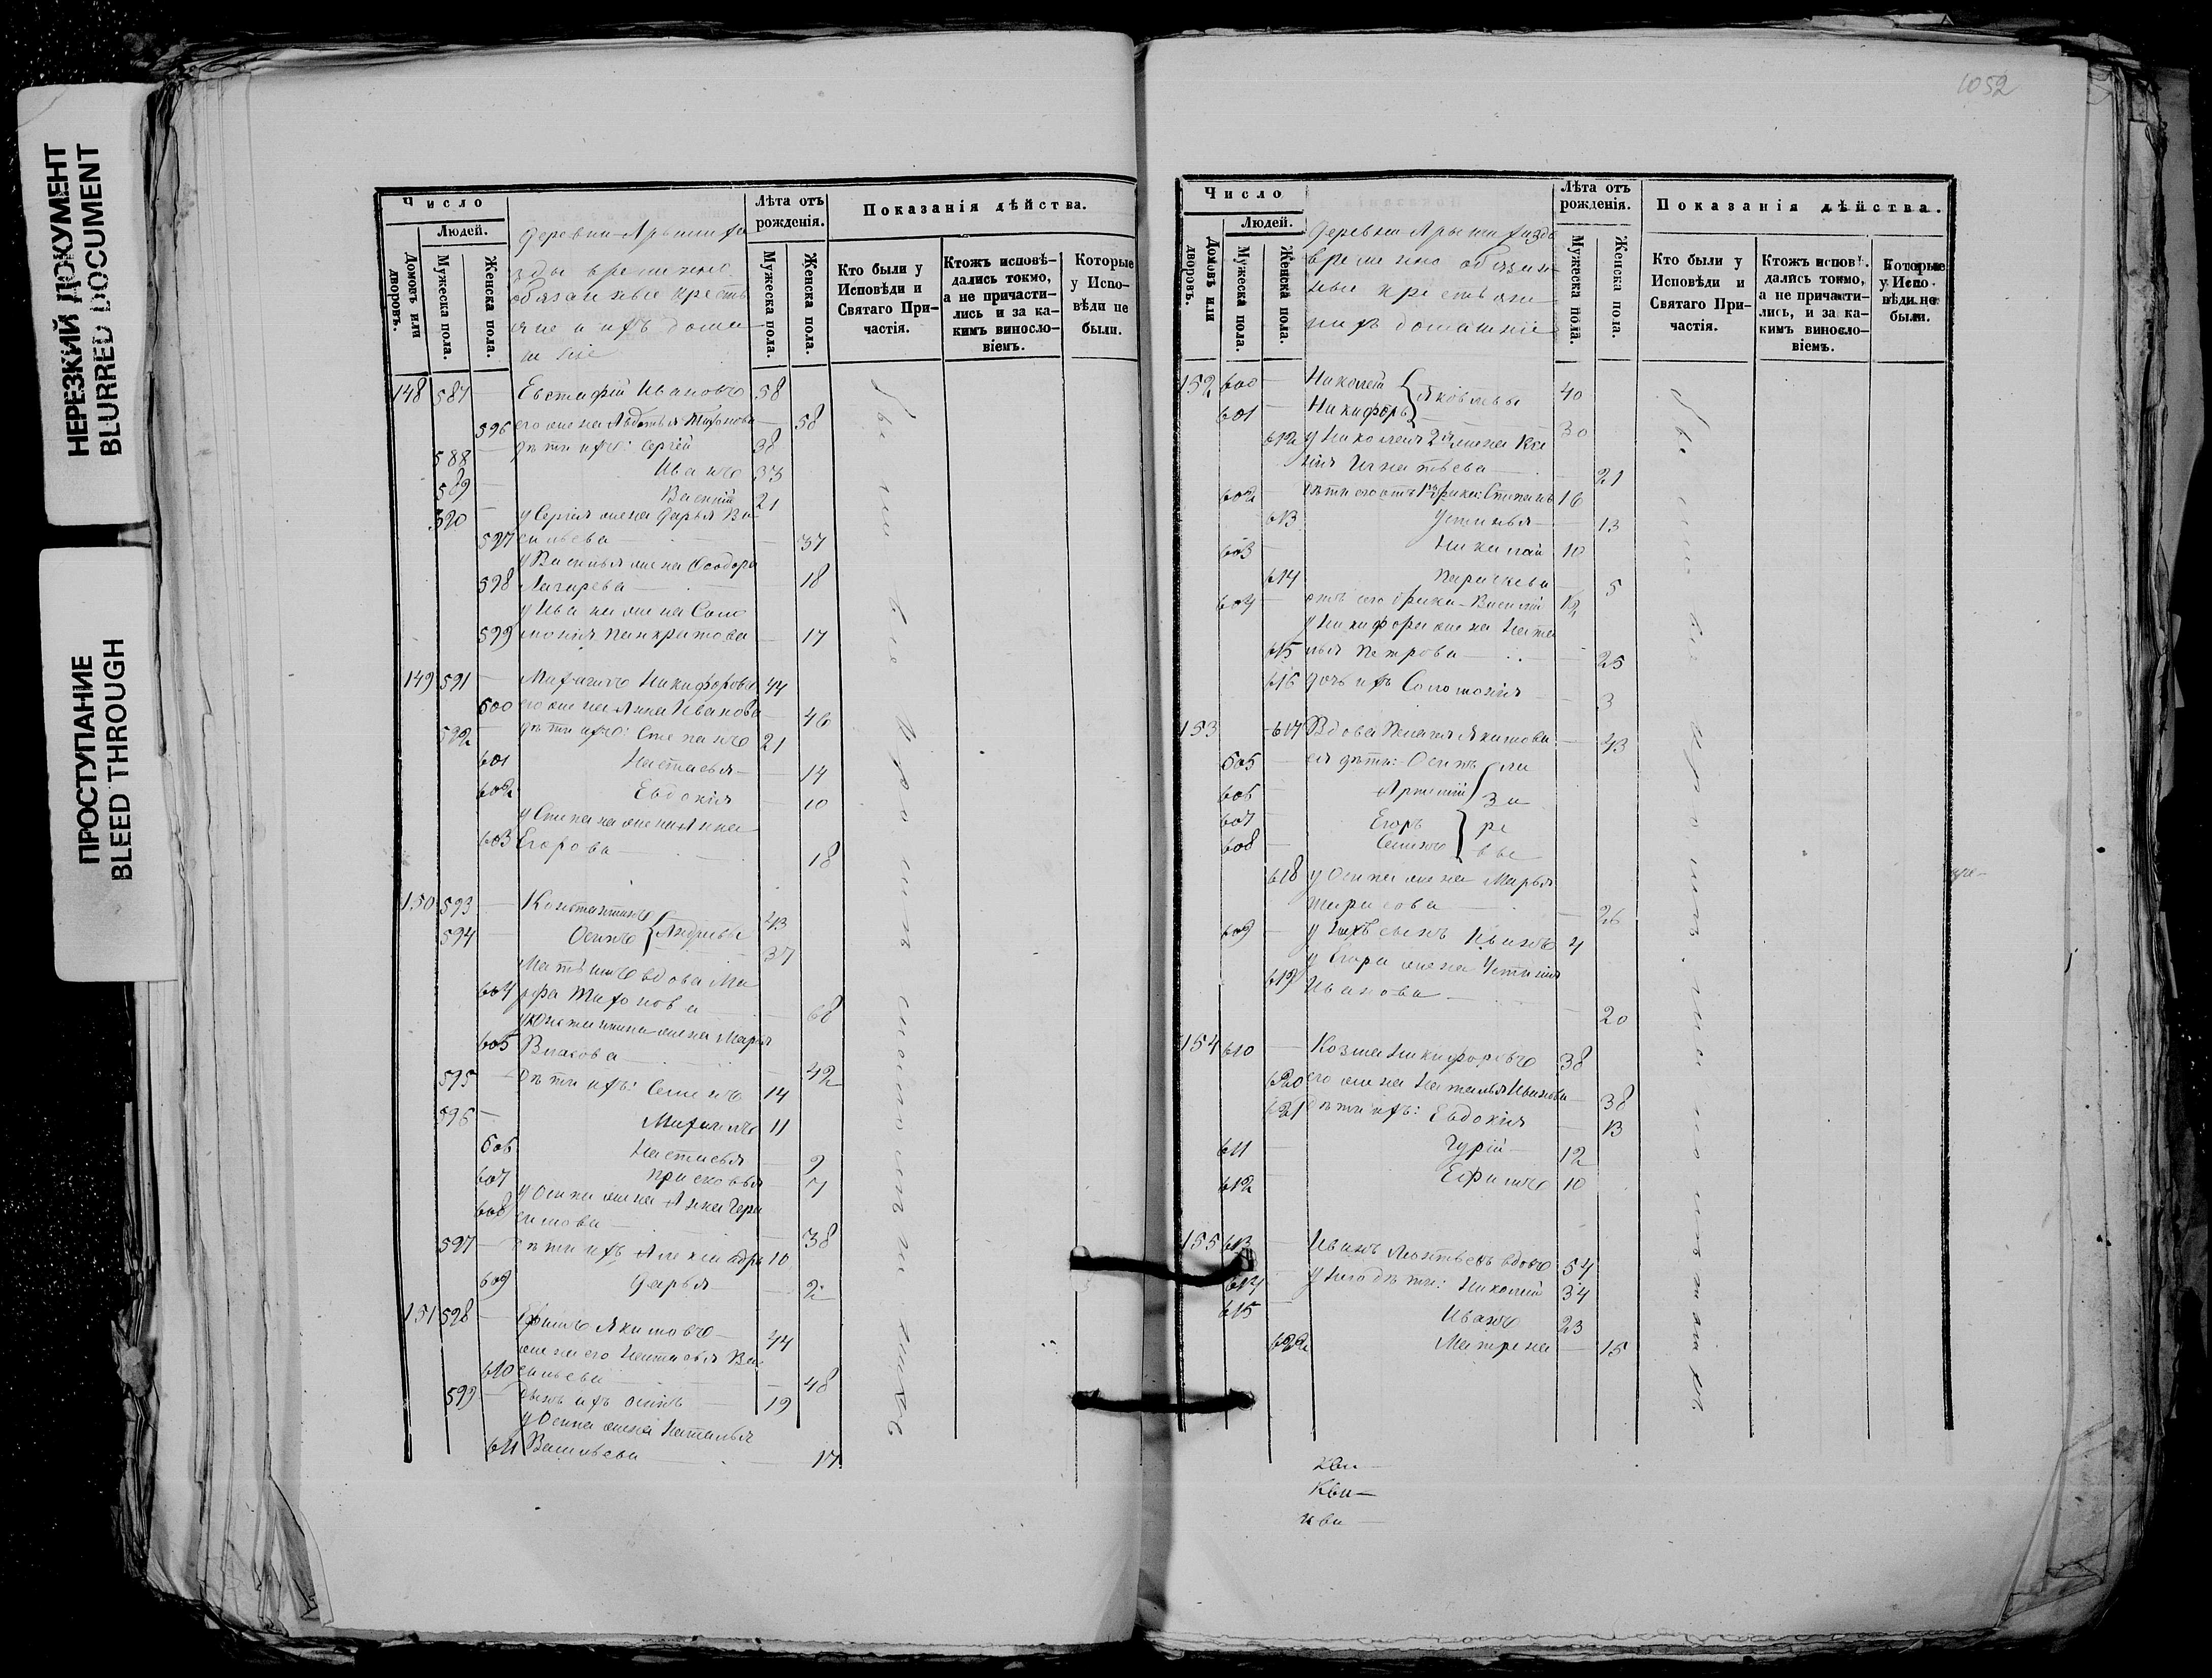 НЕРЕЗКИЙ ДОКУМЕНТ
BLURRED DOCUMENT
ПРОСТУПАНИЕ
BLEED THROUGH
Число
Людей.
Домовъ или дворовъ.
Мужеска пола.
Женска пола.
Деревни
временно
обязанные кресть
яне и ихъ дома
шніе
Лѣта отъ рожденія.
Мужеска пола.
Женска пола.
Показанія дѣйства.
Кто были у Исповѣди и Святаго Причастія.
Ктожъ исповѣдались токмо, а не причастились и за какимъ винословіемъ.
Которые у Исповѣди не были.
148 587 — Евстафій Ивановъ 58
596 его жена Авдотья Тихонова — 58
588 — дѣти ихъ: Сергій 38
589 — Иванъ 33
590 — Василій 21
у Сергія жена Дарья Ва
597 сильева — 37
у Василья жена Ѳеодора
598 Лазарева — 18
у Ивана жена Соло
599 монія Панкратова — 17
149 591 — Михаилъ Никифоровъ 44
600 его жена Анна Иванова — 46
592 — дѣти ихъ: Степанъ 21
601 Настасья — 14
602 Евдокія — 10
у Степана жена Анна
603 Егорова — 18
150 593 — Константинъ 43
594 — Осипъ } Андреевы 37
Мать ихъ вдова Ма
604 рфа Тихонова — 68
у Константина жена Марья
605 Власова — 42
595 — дѣти ихъ: Семенъ 14
596 — Михаилъ 11
606 Настасья — 9
607 Присковья — 7
у Осипа жена Анна Гера
608 симова — 38
597 — дѣти ихъ Александръ 10
609 Дарья — 2
151 598 — Ефимъ Якимовъ — 44
жена его Настасья Ва
610 сильева — 48
599 — сынъ ихъ Осипъ — 19
у Осипа жена Наталья
611 Васильева — 17
1052
Число
Людей.
Домовъ или дворовъ.
Мужеска пола.
Женска пола.
Деревни
временно обязан
ные крестьяне
и ихъ домашніе
Лѣта отъ рожденія.
Мужеска пола.
Женска пола.
Показанія дѣйства.
Кто были у Исповѣди и Святаго Причастія.
Ктожъ исповѣдались токмо, а не причастились, и за какимъ винословіемъ.
Которые у Исповѣди не были.
152 600 — Николай 40
601 — Никифоръ } Яковлевы 30
612 у Николая 2я жена Ксе
нія Игнатьева — 21
602 — дѣти его отъ 1го брака: Степанъ 16
613 Устинья — 13
603 — Николай 10
614 Параскева — 5
604 — отъ его брака Василій
у Никифора жена Ната
615 лья Петрова — 25
616 дочь ихъ Соломонія — 3
153 617 Вдова Пелагія Якимова — 43
605 — ея дѣти: Осипъ
606 — Артемій
607 — Егоръ
608 — Семенъ
} ла за ре вы
618 у Осипа жена Марья
Тарасова — 26
609 — у нихъ сынъ Иванъ 4
у Егора жена Устинія
619 Иванова — 20
154 610 — Козма Никифоровъ 38
620 его жена Наталья Иванова — 38
621 дѣти ихъ: Евдокія — 13
611 — Гурій — 12
612 — Ефимъ 10
155 613 — Иванъ Леонтьевъ вдовъ 54
614 — у него дѣти: Николай 34
615 — Иванъ 23
622 Матрена — 15